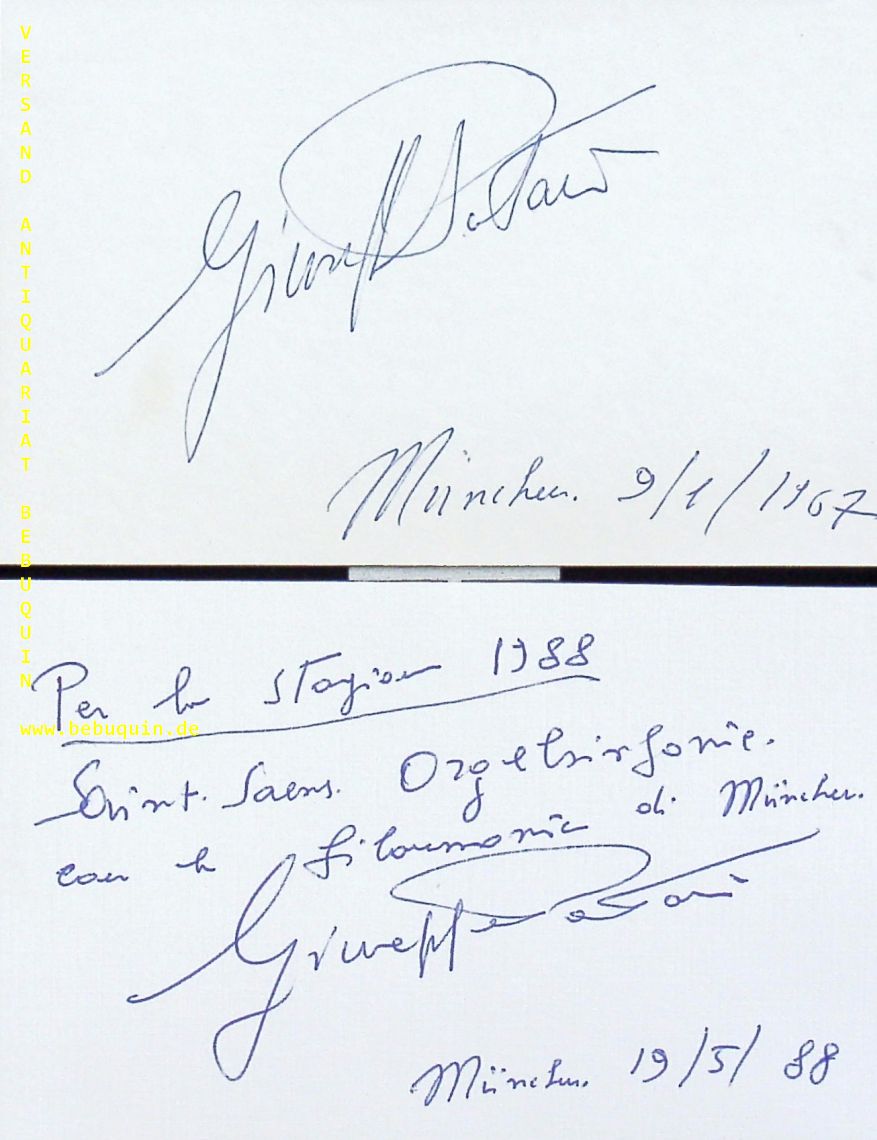 VERSAND ANTIQUARIAT BEBUQUIN
www.bebuquin.de
Giuseppe Patanè
München. 9/1/1967
Per la stagione 1988
Saint-Saens. Orgelsinfonie.
con la filarmonica di München.
Giuseppe Patanè
München. 19/5/88